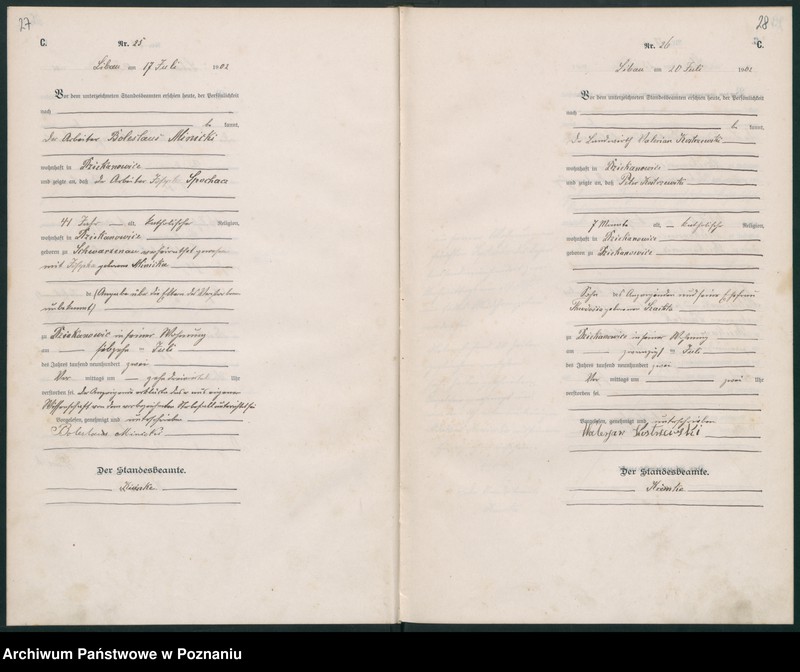 27
C.
Nr. 25
Libau am 17 Juli 1902
Vor dem unterzeichneten Standesbeamten erschien heute, der Persönlichkeit
nach
be kannt,
der Arbeiter Boleslaus Minicki
wohnhaft in Dziekanowice
und zeigte an, daß der Arbeiter Spochacz
41 Jahr alt, katholischer Religion,
wohnhaft in Dziekanowice
geboren zu Schwarzenau verheirathet gewesen
mit geborene Minicka
de (Angabe über die Eltern des Verstorbenen
unbekannt)
zu Dziekanowice in seiner Wohnung
am siebzehn Juli
des Jahres tausend neunhundert zwei
Vor mittags um Uhr
verstorben sei. der Anzeigende erklärte daß er aus eigener
Wissenschaft von dem vorbezeichneten Sterbefall unterrichtet sei
Vorgelesen, genehmigt und unterschrieben
Boleslaus Minicki
Der Standesbeamte.
28
Nr. 26
C.
Libau am 20 Juli 1902
Vor dem unterzeichneten Standesbeamten erschien heute, der Persönlichkeit
nach
be kannt,
der Landwirth Valerian
wohnhaft in Dziekanowice
und zeigte an, daß Peter
7 Monate alt, katholischer Religion,
wohnhaft in Dziekanowice
geboren zu Dziekanowice
Sohn des Anzeigenden und seiner Ehefrau
geborener
zu Dziekanowice in seiner Wohnung
am zwanzigsten Juli
des Jahres tausend neunhundert zwei
Vor mittags um zwei Uhr
verstorben sei.
Vorgelesen, genehmigt und unterschrieben
Der Standesbeamte.
Archiwum Państwowe w Poznaniu